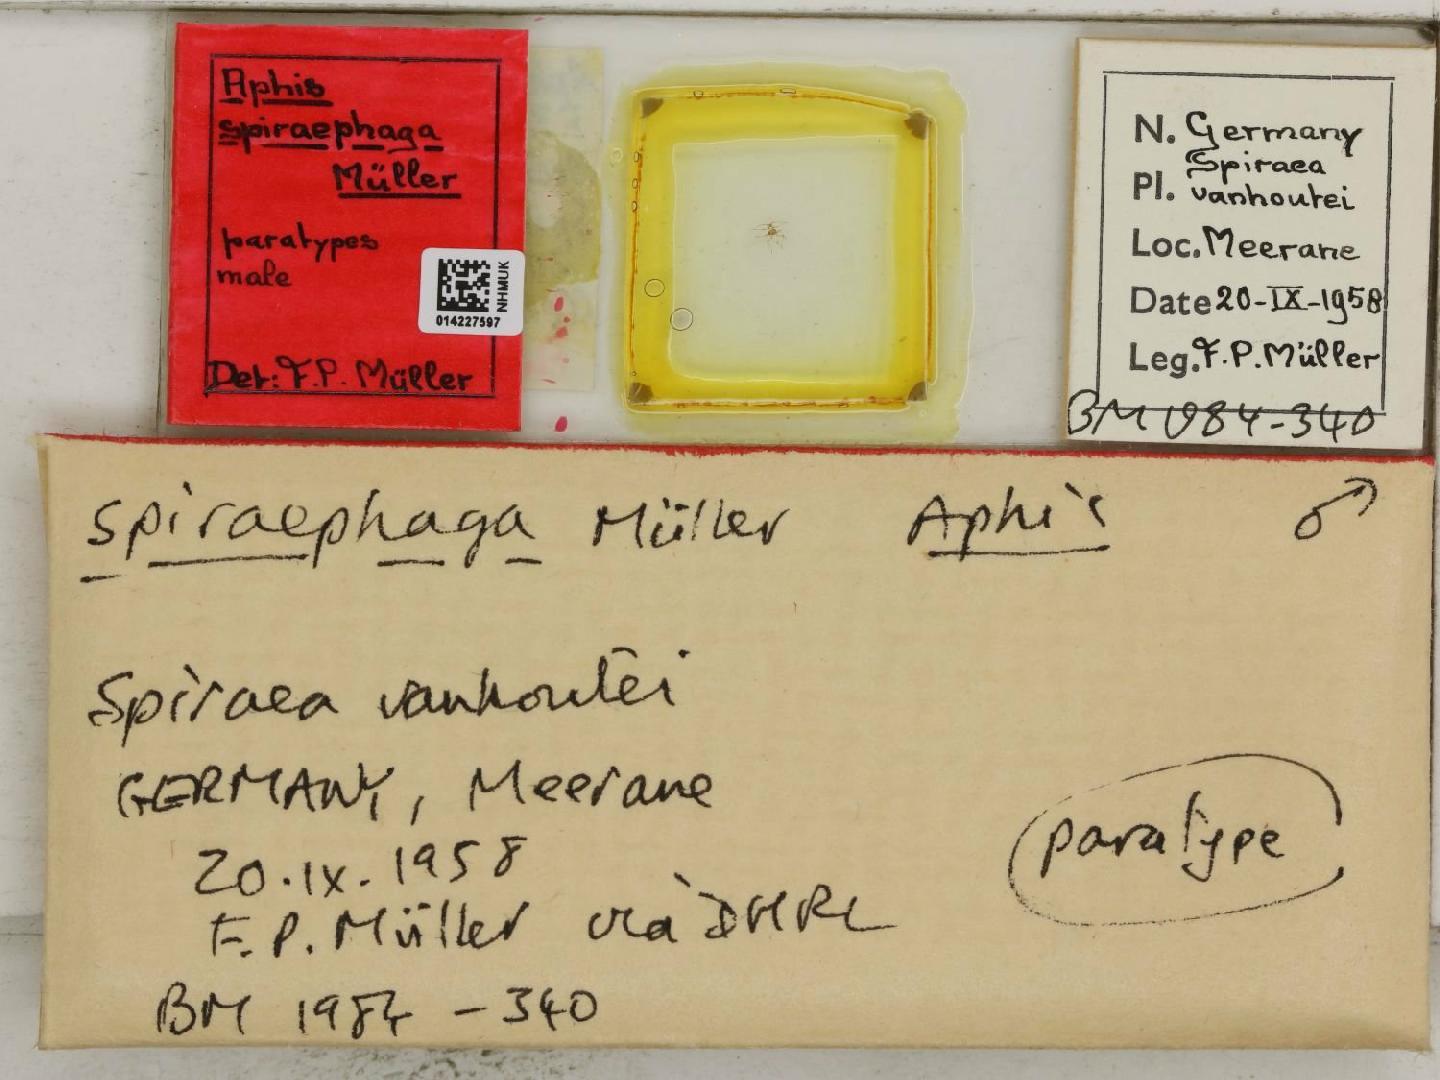 Aphis
spiraephaga
Müller
paratypes
male
Det: F.P. Müller
NHMUK
014227597
N. Germany
Pl. Spiraea
vanhoutei
Loc. Meerane
Date 20-IX-1958
Leg. F.P. Müller
BM 1984-340
spiraephaga Müller Aphis ♂
Spiraea vanhoutei
GERMANY, Meerane
20.IX.1958
F.P. Müller via DHRL
BM 1984-340
paratype